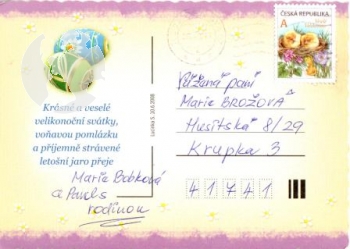 ČESKÁ REPUBLIKA
A
Vážená paní
Marie BROŽOVÁ
Husitská 8/29
Krupka 3
41741
Krásné a veselé
velikonoční svátky,
voňavou pomlázku
a příjemně strávené
letošní jaro přeje
Marie Bobková
a Pavel s
rodinou